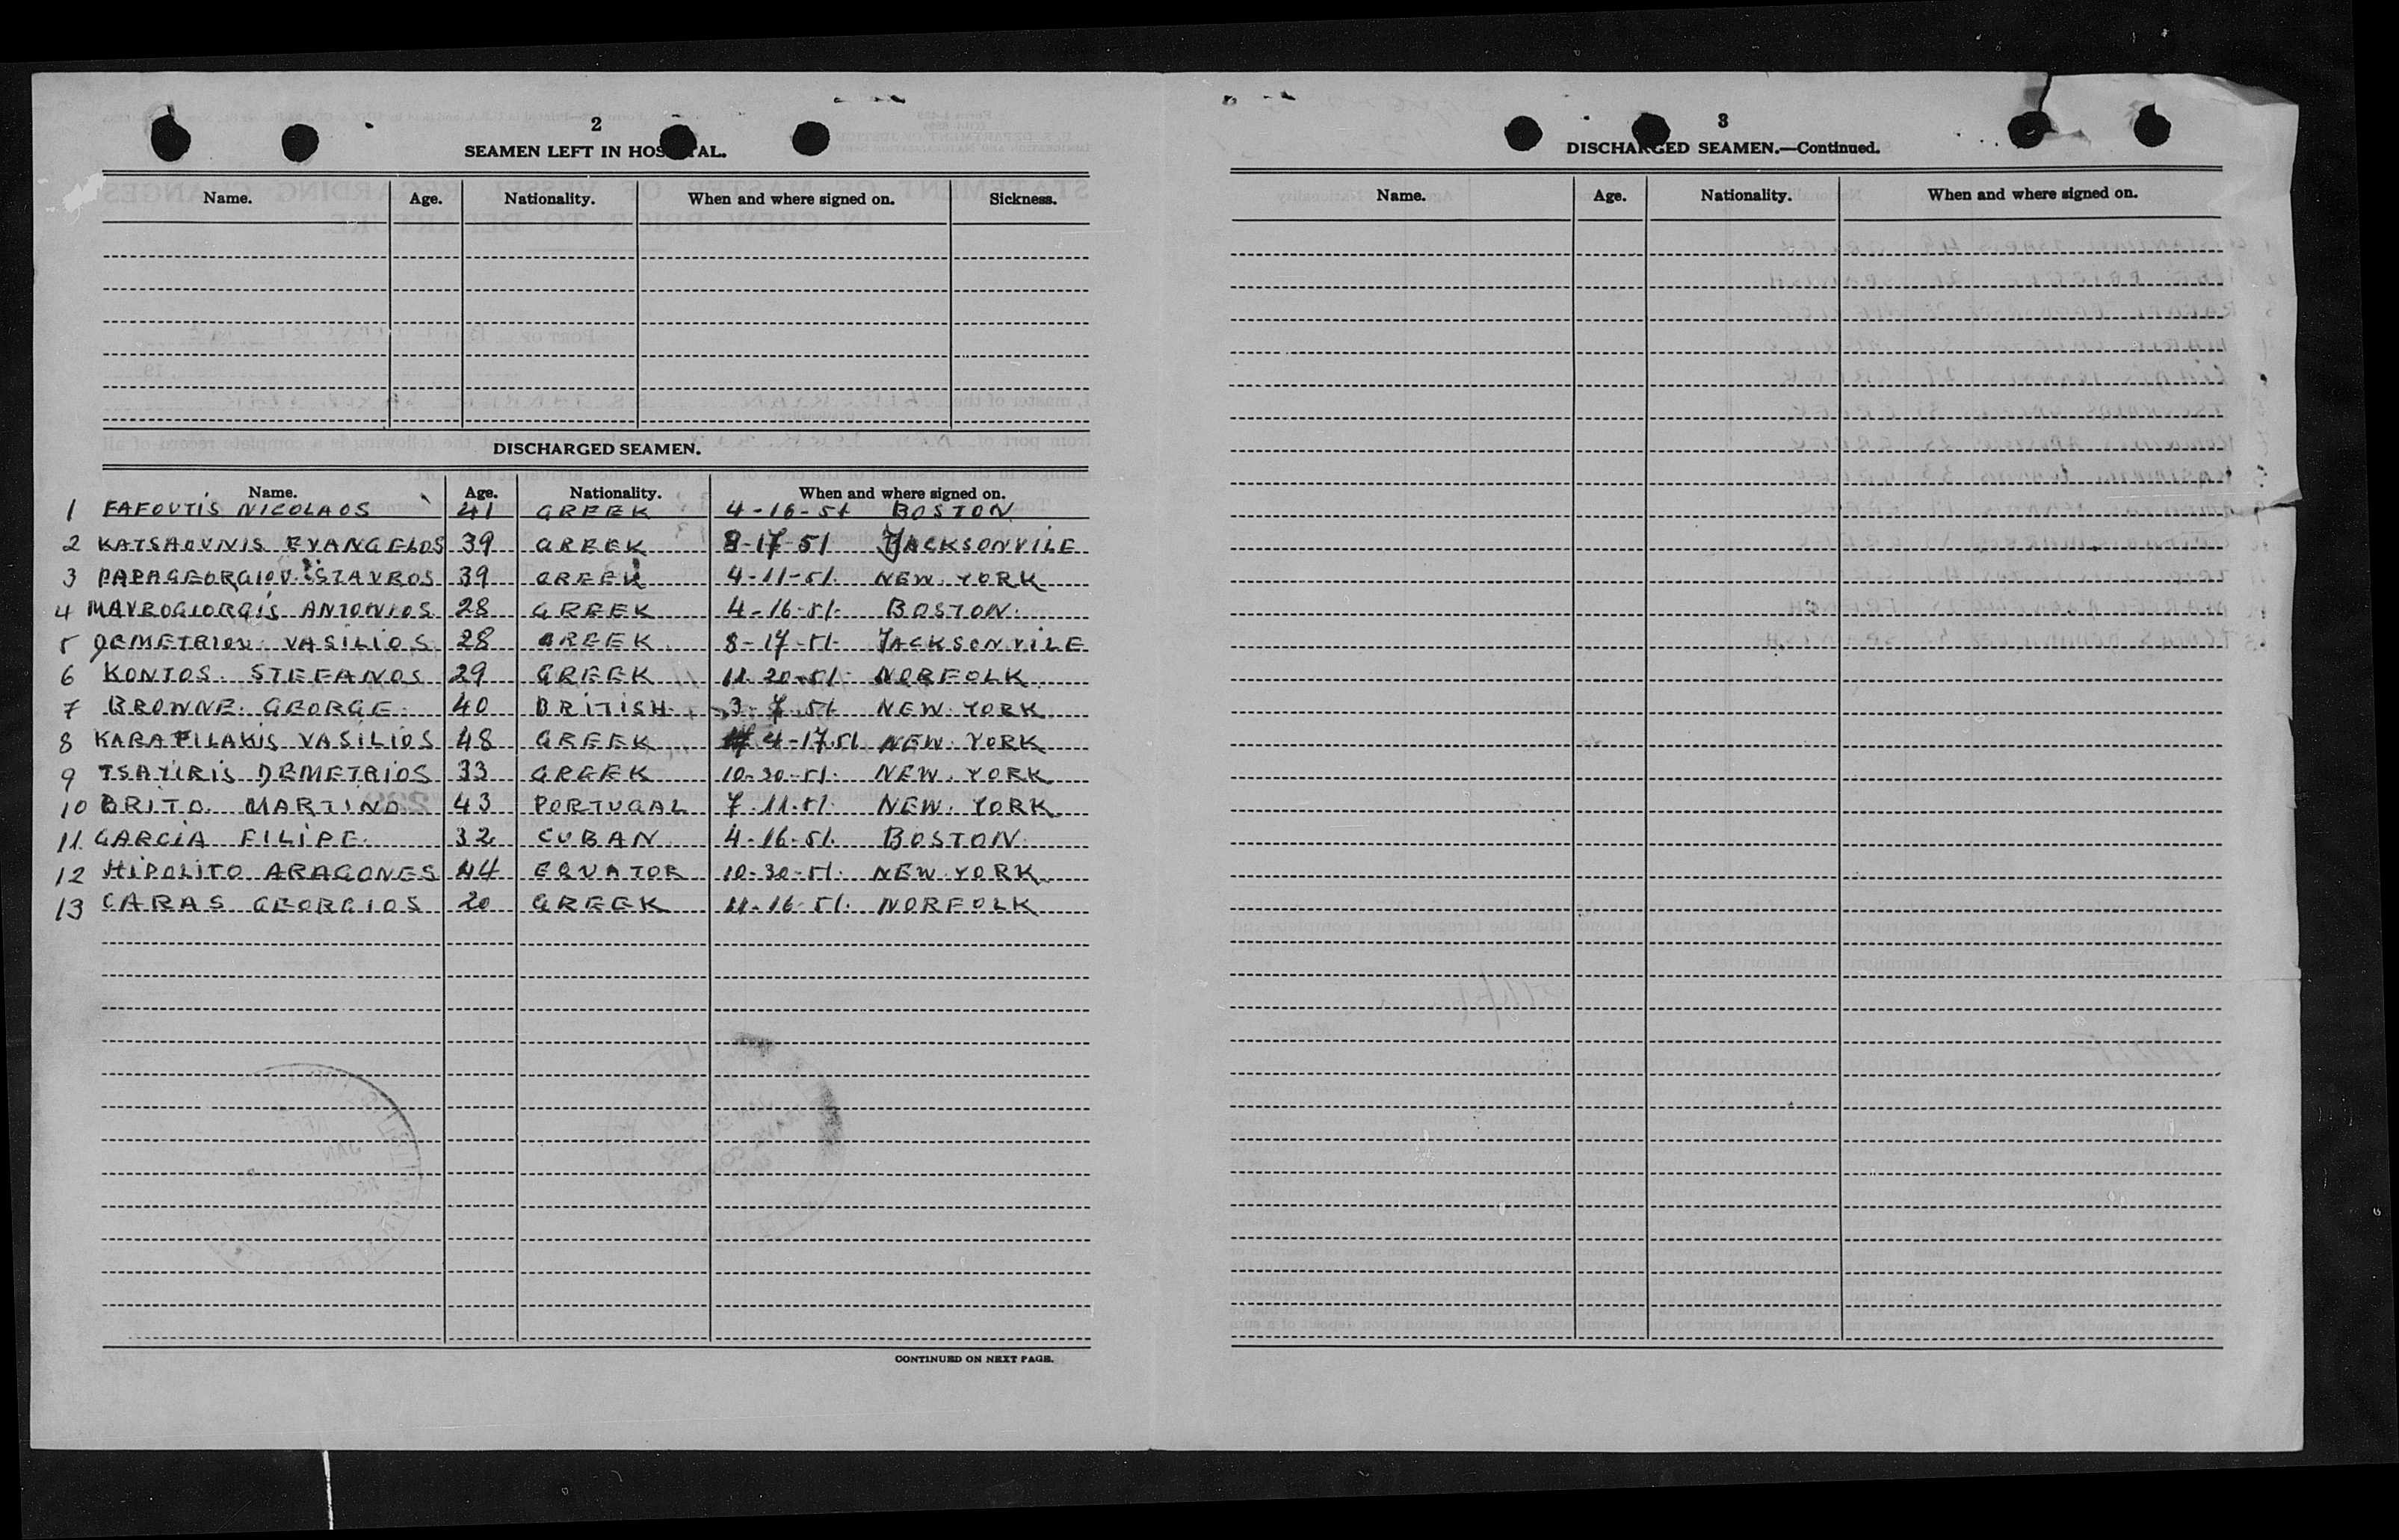 2
SEAMEN LEFT IN HOSPITAL.
Name. Age. Nationality. When and where signed on. Sickness.
DISCHARGED SEAMEN.
Name. Age. Nationality. When and where signed on.
1 FAFOUTIS NICOLAOS 41 GREEK 4-16-51 BOSTON
2 KATSAOUNIS EVANGELOS 39 GREEK 8-17-51 JACKSONVILE
3 PAPAGEORGIOU STAVROS 39 GREEK 4-11-51. NEW YORK
4 MAVROGIORGIS ANTONIOS 28 GREEK 4-16-51. BOSTON.
5 DEMETRIOU VASILIOS 28 GREEK 8-17-51. JACKSONVILE
6 KONTOS STEFANOS 29 GREEK 11.20-51. NORFOLK
7 BROWNE GEORGE 40 BRITISH 3-7.51 NEW YORK
8 KARAFILAKIS VASILIOS 48 GREEK 4-17.51 NEW YORK
9 TSATIRIS DEMETRIOS 33 GREEK 10-30-51. NEW YORK
10 BRITO MARTINO 43 PORTUGAL 7.11.51. NEW YORK
11. GARCIA FILIPE. 32 CUBAN 4-16-51. BOSTON.
12 HIPOLITO ARAGONES 44 EQUATOR 10-30-51. NEW YORK
13 CARAS GEORGIOS 20 GREEK 11-16-51. NORFOLK
CONTINUED ON NEXT PAGE.
3
DISCHARGED SEAMEN.—Continued.
Name. Age. Nationality. When and where signed on.